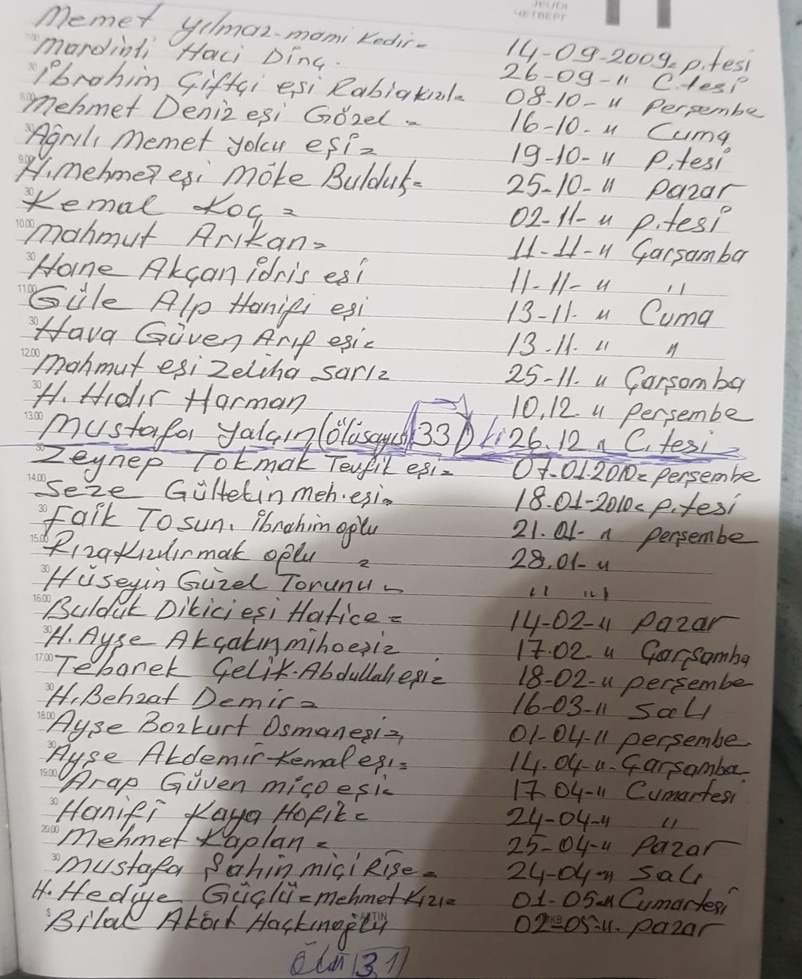 JEUDI
ЧЕТВЕРГ
11
Memet yılmaz-mami Kedir= 14-09-2009= p.tesi
Mardinli Haci Dinç. 26-09-" C.tesi
İbrahim Çiftçi eşi Rabiakızı= 08-10-" Perşembe
Mehmet Deniz eşi Gözel = 16-10-" Cuma
Ağrılı Memet yolcu eşi= 19-10-" P.tesi
H.mehmet eşi Möke Bulduk= 25-10-" pazar
Kemal Koç = 02-11-" p.tesi
Mahmut Arıkan= 11-11-" Çarşamba
Hane Akçan idris eşi 11-11-" "
Güle Alp Hanifi eşi 13-11-" Cuma
Hava Güven Arif eşi= 13.11. " "
Mahmut eşi Zeliha Sarı= 25-11. " Çarşamba
H. Hıdır Harman 10.12. " perşembe
Mustafa yalçın (ölü sayısı 33) 26.12. " C.tesi=
Zeynep Tokmak Tevfik eşi= 07.01.2010= perşembe
Seze Gültekin meh.eşi= 18.01-2010= p.tesi
Faik Tosun. İbrahim oğlu 21.01- " perşembe
Rıza Kızılırmak oğlu = 28.01-"
Hüseyin Güzel Torunu= " "
Bulduk Dikici eşi Hatice= 14-02-" pazar
H. Ayşe Akçakın 17.02 " Çarşamba
Tebarek Çelik-Abdullah eşi= 18-02-" perşembe
H. Behzat Demir= 16-03-" Salı
Ayşe Bozkurt Osman eşi= 01-04-" perşembe
Ayşe Akdemir-Kemal eşi= 14.04-". Çarşamba
Arap Güven miço eşi= 17.04-" Cumartesi
Hanifi Kaya Hofik= 24-04-" "
Mehmet Kaplan = 25-04-" Pazar
Mustafa Şahin miçi Rişe= 24-04-" Salı
H. Hediye Güçlü=mehmet Kızı= 01-05-" Cumartesi
Bilal Akört 02-05-". pazar
31